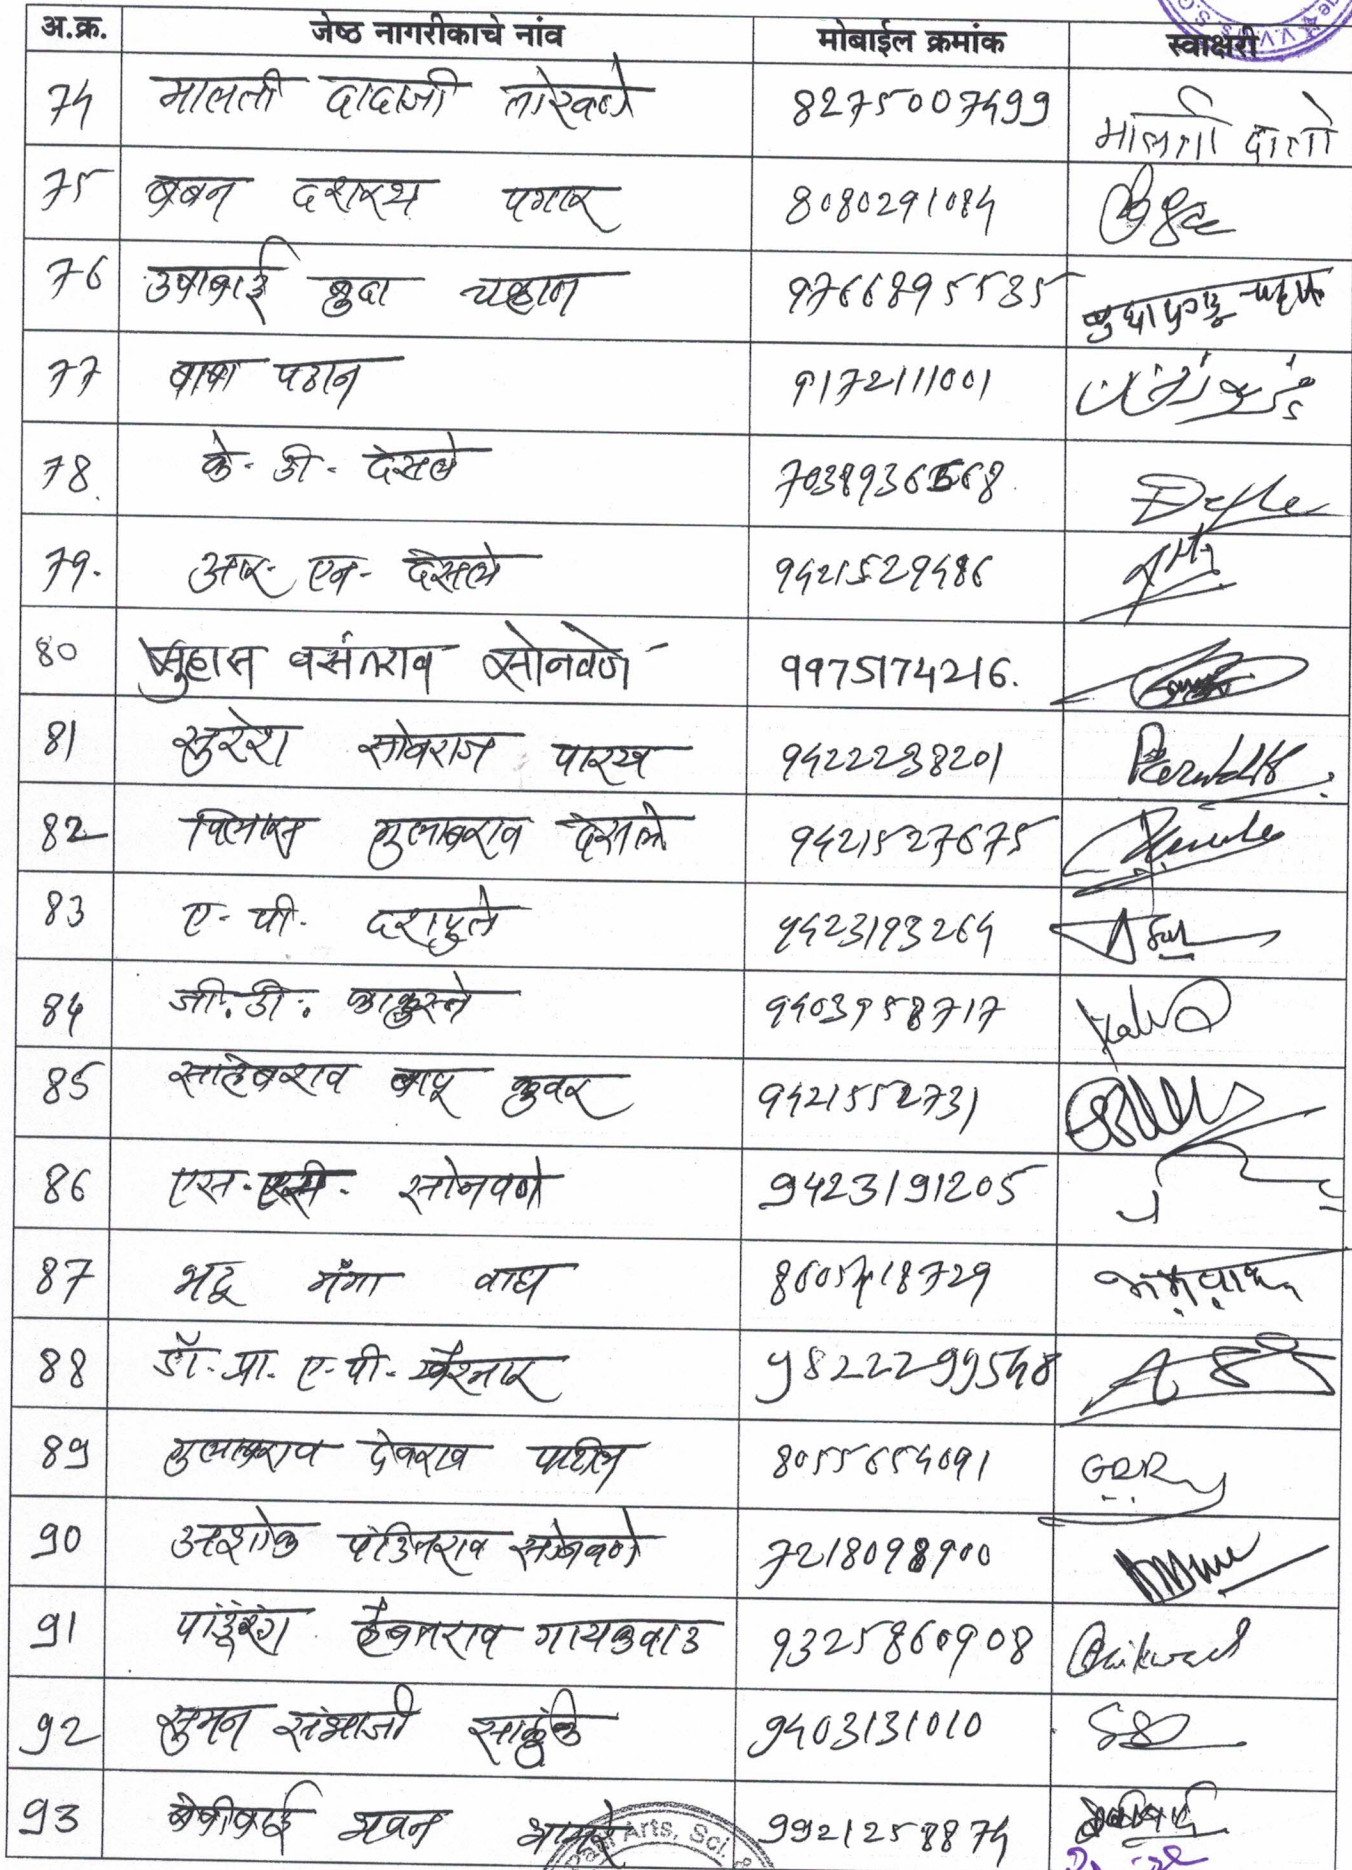 अ.क्र. जेष्ठ नागरीकाचे नांव मोबाईल क्रमांक स्वाक्षरी
74 मालती दादाजी तोरवणे 8275007499 मालती
75 बबन दशरथ पगार 8080291084
76 उषाबाई बुधा चव्हाण 9766895535
77 बाबा पठान 9172111001
78. के. डी. देसले 7038936568.
79. आर. एन. देसले 9421529486
80 सुहास वसंतराव सोनवणे 9975174216.
81 सुरेश सोवराज पारख 9422238201
82 विलास गुलाबराव देसले 9421527675
83 ए. पी. दशपुते 9423193264
84 जी. डी. काकुस्ते 9403958717
85 साहेबराव बापू कुवर 9421552731
86 एस. एस. सोनवणे 9423191205
87 भटू गंगा वाघ 8605418729
88 डॉ. प्रा. ए. पी. खैरनार 9822299548
89 गुलाबराव देवराव पाटील 8055654091 GDR
90 अशोक पंडितराव सोनवणे 7218098900
91 पांडूरंग हैबतराव गायकवाड 9325860908 Gaikwad
92 सुमन संभाजी साळुंके 9403131010
93 बेबीबाई भवन भामरे 9921258874 बेबीबाई
Arts, Sci. &